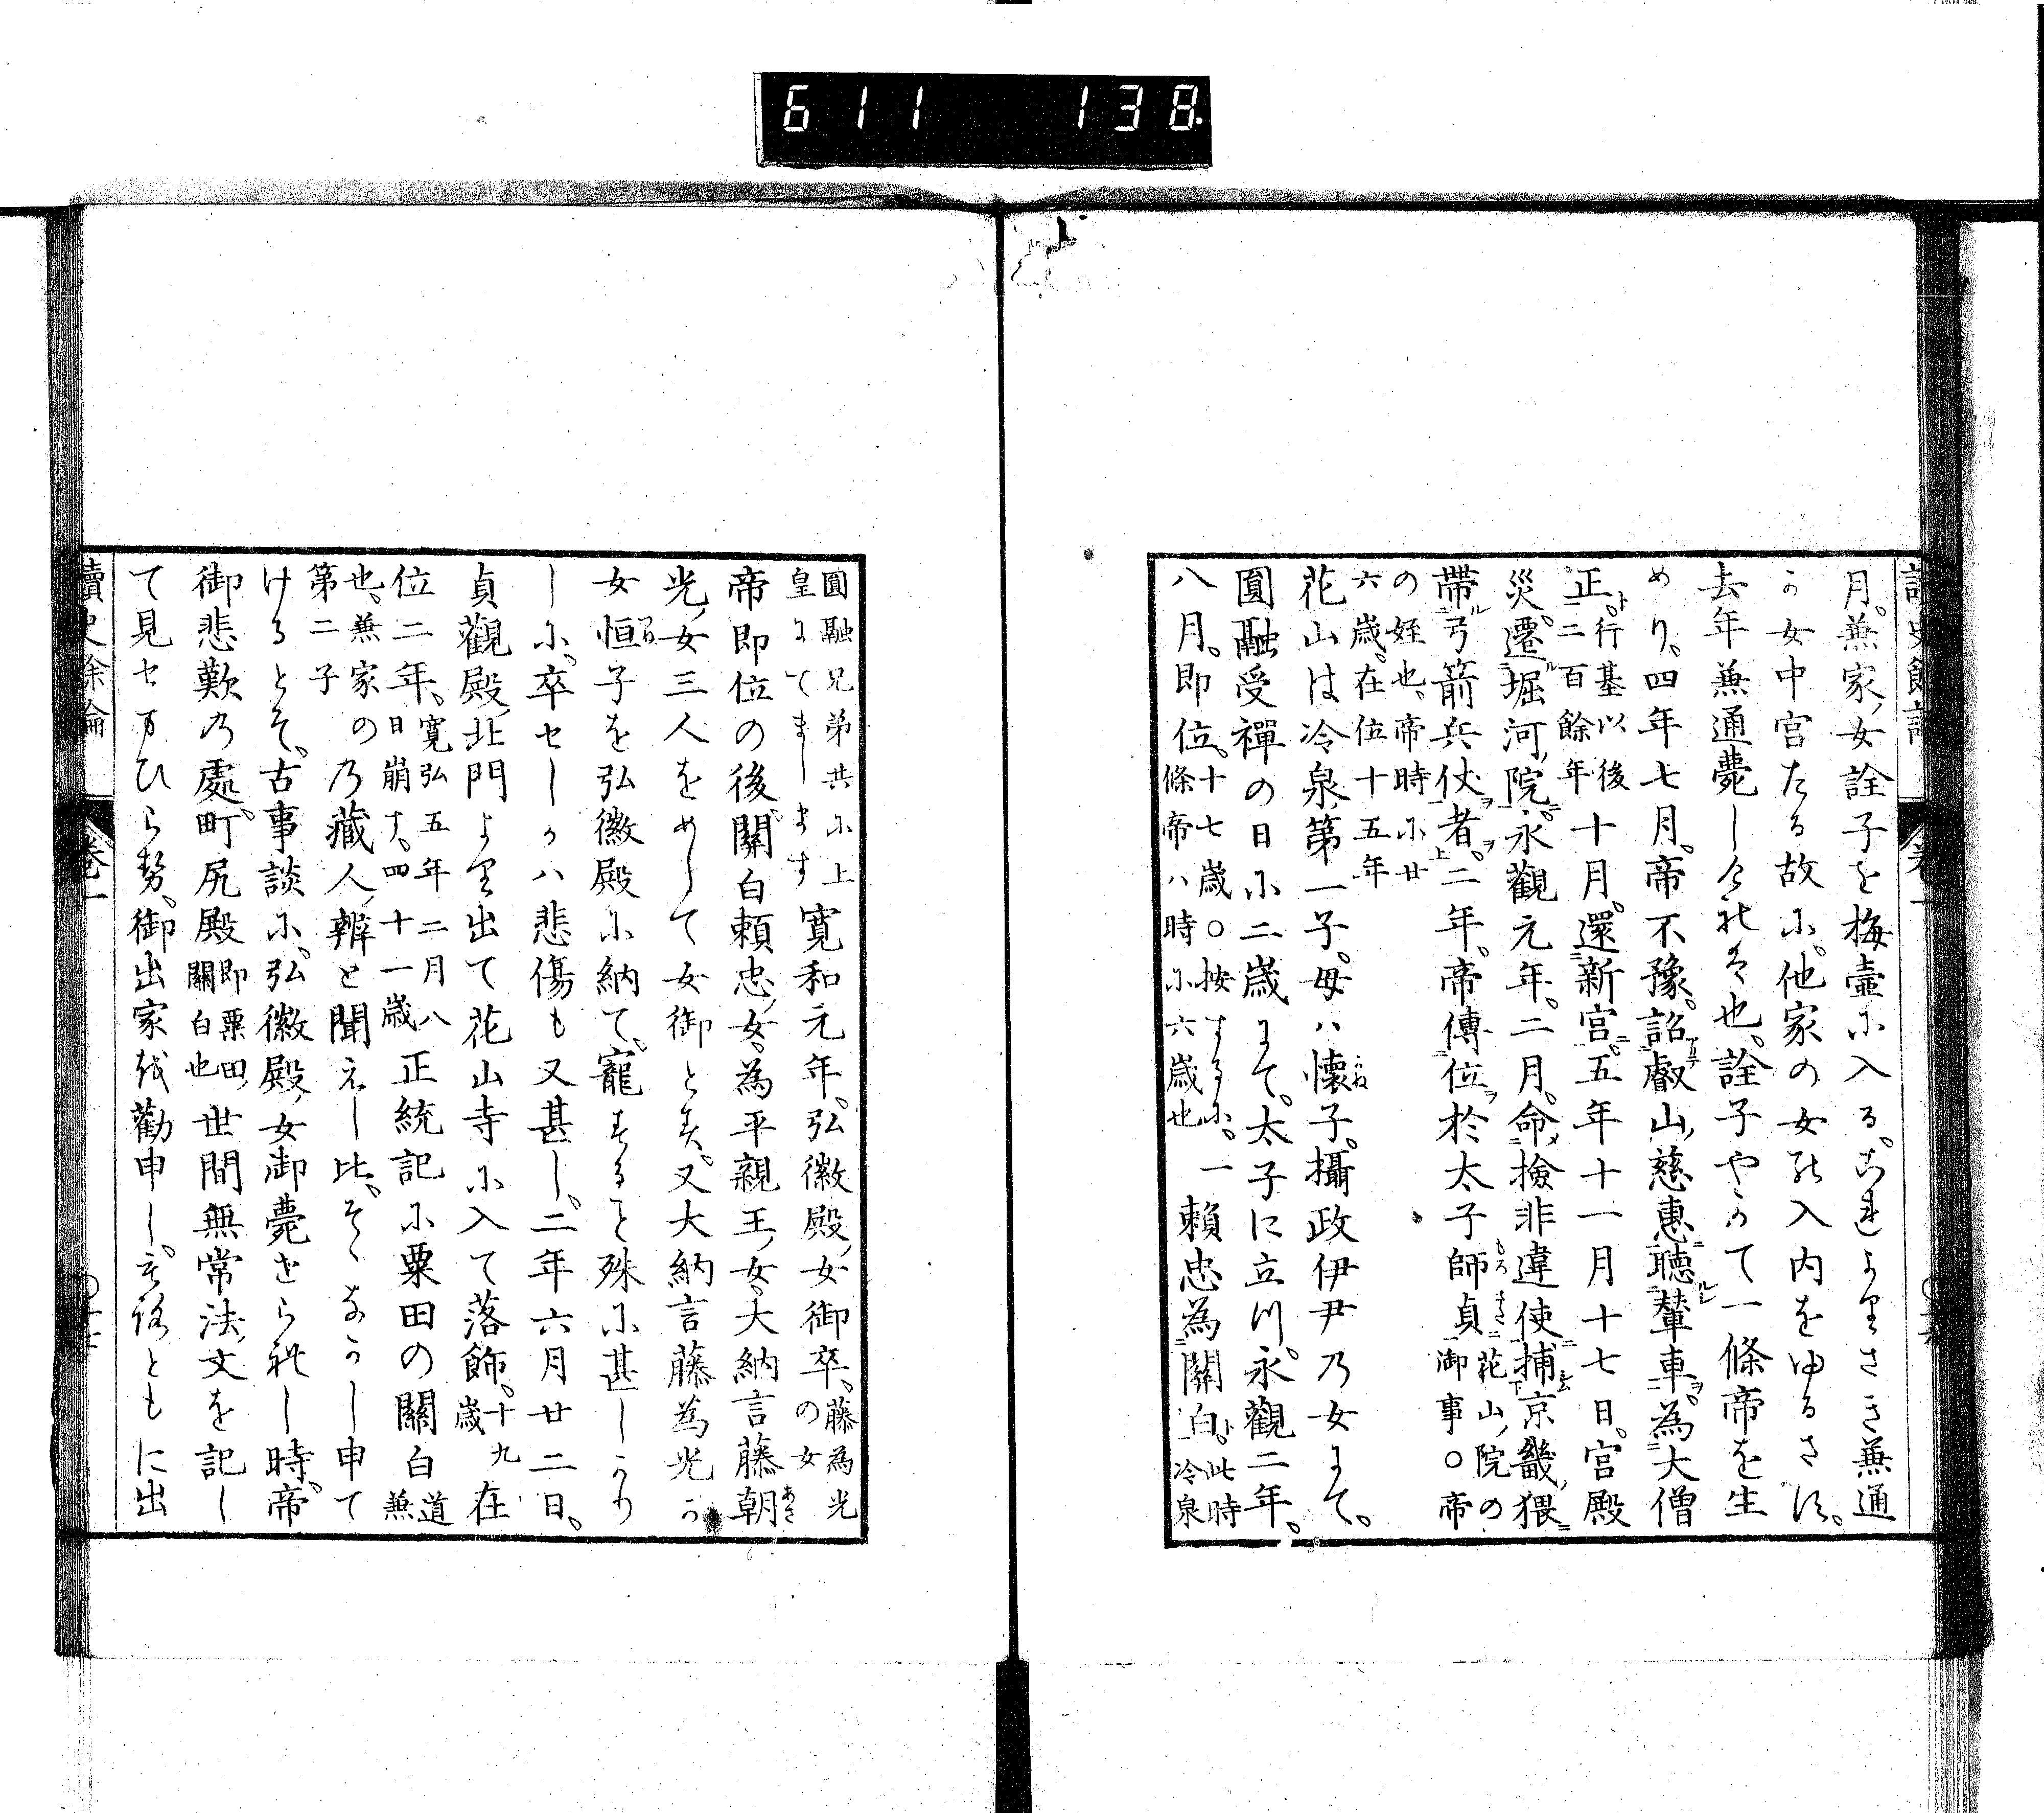 611 138
上
讀史餘論 卷一
月。兼家、女詮子を梅壺に入る。これよりさき兼通
か女中宮たる故に。他家の女の入内をゆるさす。
去年兼通薨しけれは也。詮子やかて一條帝を生
めり、四年七月。帝不豫。詔叡山、慈惠聽輦車。為大僧
正。行基以後二百餘年 十月。還新宮。五年十一月十七日。宮殿
災。遷堀河、院。永觀元年。二月。命檢非違使捕京畿、猥
帶弓箭兵仗者。二年。帝傳位於太子師貞 花山、院の御事〇帝
の姪也。帝時に廿六歲。在位十五年
花山は冷泉、第一子。母ハ懷子。攝政伊尹乃女にて。
圓融受禪の日に二歲にて。太子に立つ。永觀二年。
八月。即位。十七歲〇按するに。一條帝ハ時に六歲也 賴忠為關白。此時冷泉
圓融兄弟共に上皇にてまします 寬和元年。弘徽殿、女御卒。藤為光の女
帝即位の後關白賴忠、女。為平親王、女。大納言藤朝
光、女三人をめして女御とす。又大納言藤為光か
女恒子を弘徽殿に納て。寵すること殊に甚しかり
しに。卒セしかハ悲傷も又甚し。二年六月廿二日。
貞觀殿、北門より出て花山寺に入て落飾。十九歲 在
位二年。寬弘五年二月八日崩す、四十一歲 正統記に粟田の關白道兼
也。兼家の第二子 乃藏人、辨と聞えし比。そゝなかし申て
けるとそ。古事談に。弘徽殿、女御薨せられし時。帝
御悲歎乃處。町尻殿 即粟田、關白也 世間無常法、文を記し
て見セまいらせ。御出家を勸申し。もろともに出
讀史餘論 卷一